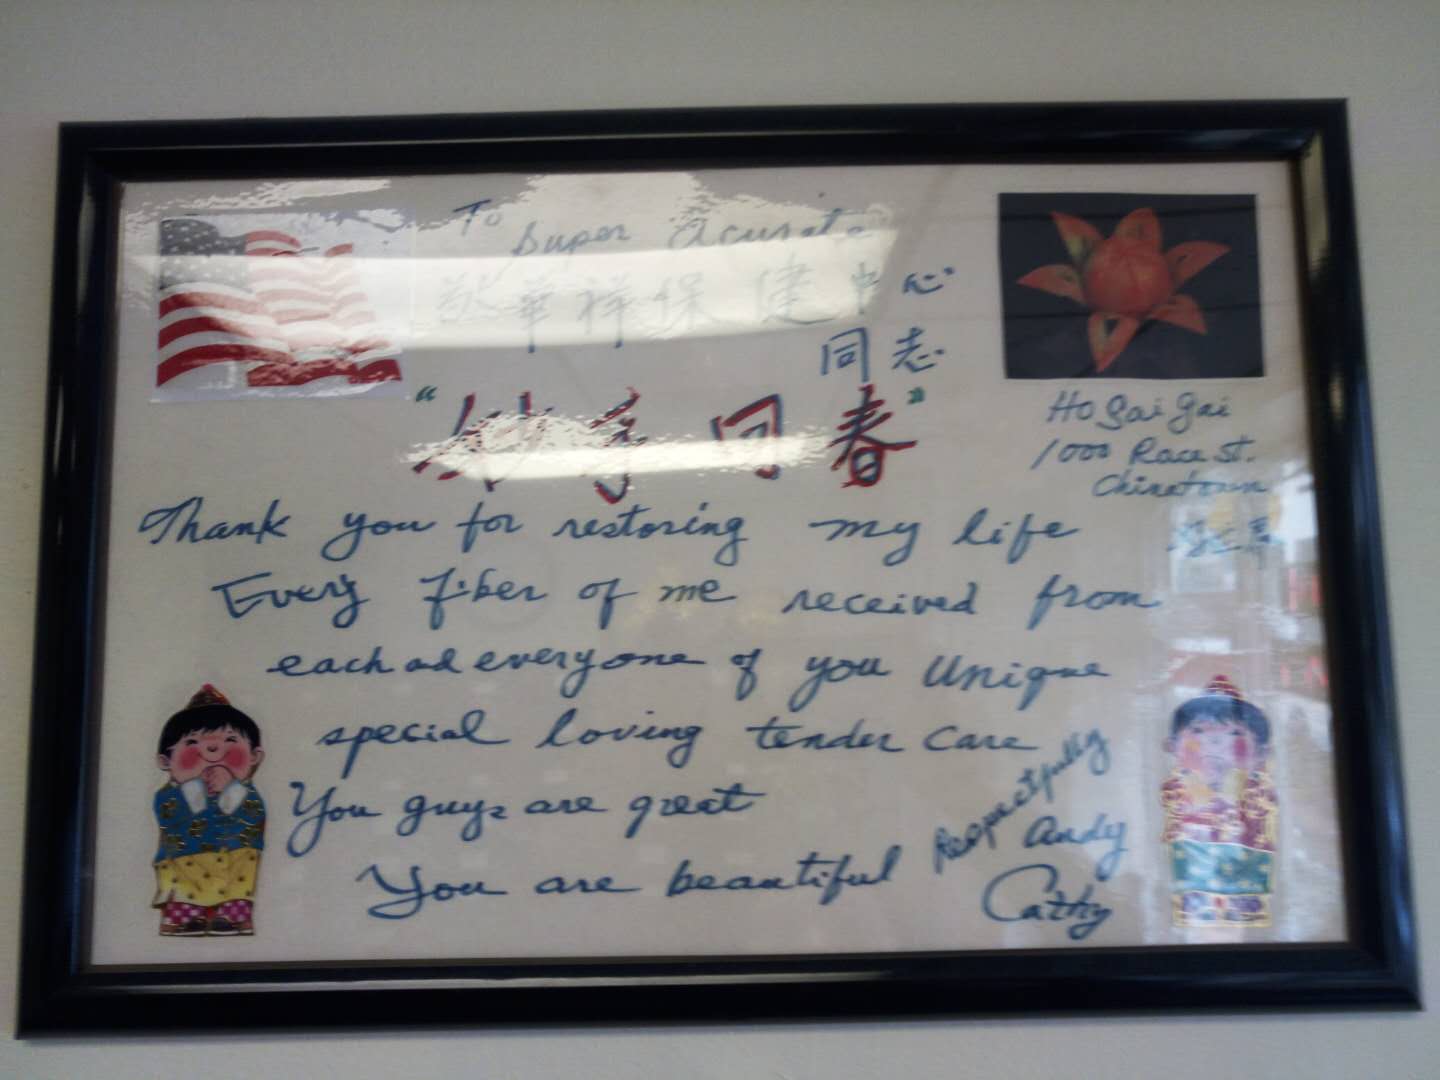 To Super Acurate
華祥保健中心
同志
“妙手回春”
Ho Sai Gai
1000 Race St.
Chinatown
Thank you for restoring my life
Every fiber of me received from
each ad everyone of you Unique
special loving tender care
You guys are great
You are beautiful
Respectfully
Andy
Cathy